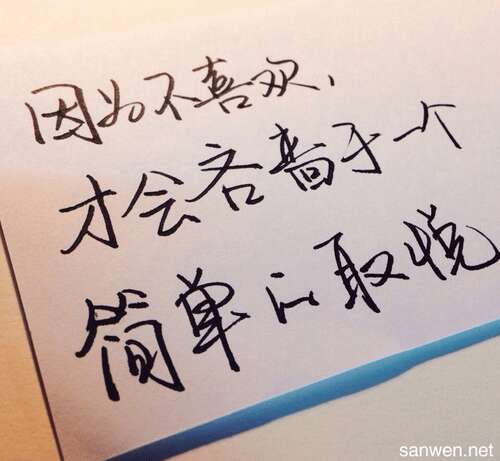 因为不喜欢、
才会吝啬于一个
简单的取悦
sanwen.net